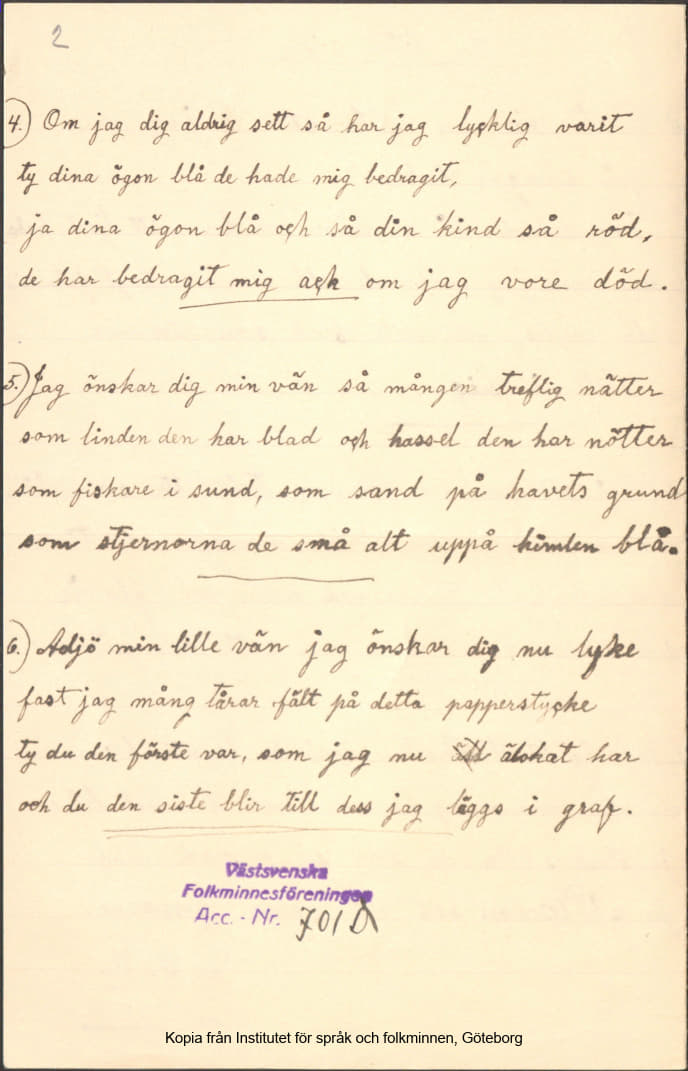 2
4.) Om jag dig aldrig sett så har jag lycklig varit
ty dina ögon blå de hade mig bedragit,
ja dina ögon blå och så din kind så röd,
de har bedragit mig ack om jag vore död.
5.) Jag önskar dig min vän så mången treflig nätter
som linden den har blad och hassel den har nötter
som fiskare i sund, som sand på havets grund
som stjernorna de små alt uppå himlen blå.
6.) Adjö min lille vän jag önskar dig nu lyke
fast jag mång tårar fält på detta papperstycke
ty du den förste var, som jag nu älskat har
och du den siste blir till dess jag läggs i graf.
Västsvenska
Folkminnesföreningen
Acc. - Nr. 701
Kopia från Institutet för språk och folkminnen, Göteborg